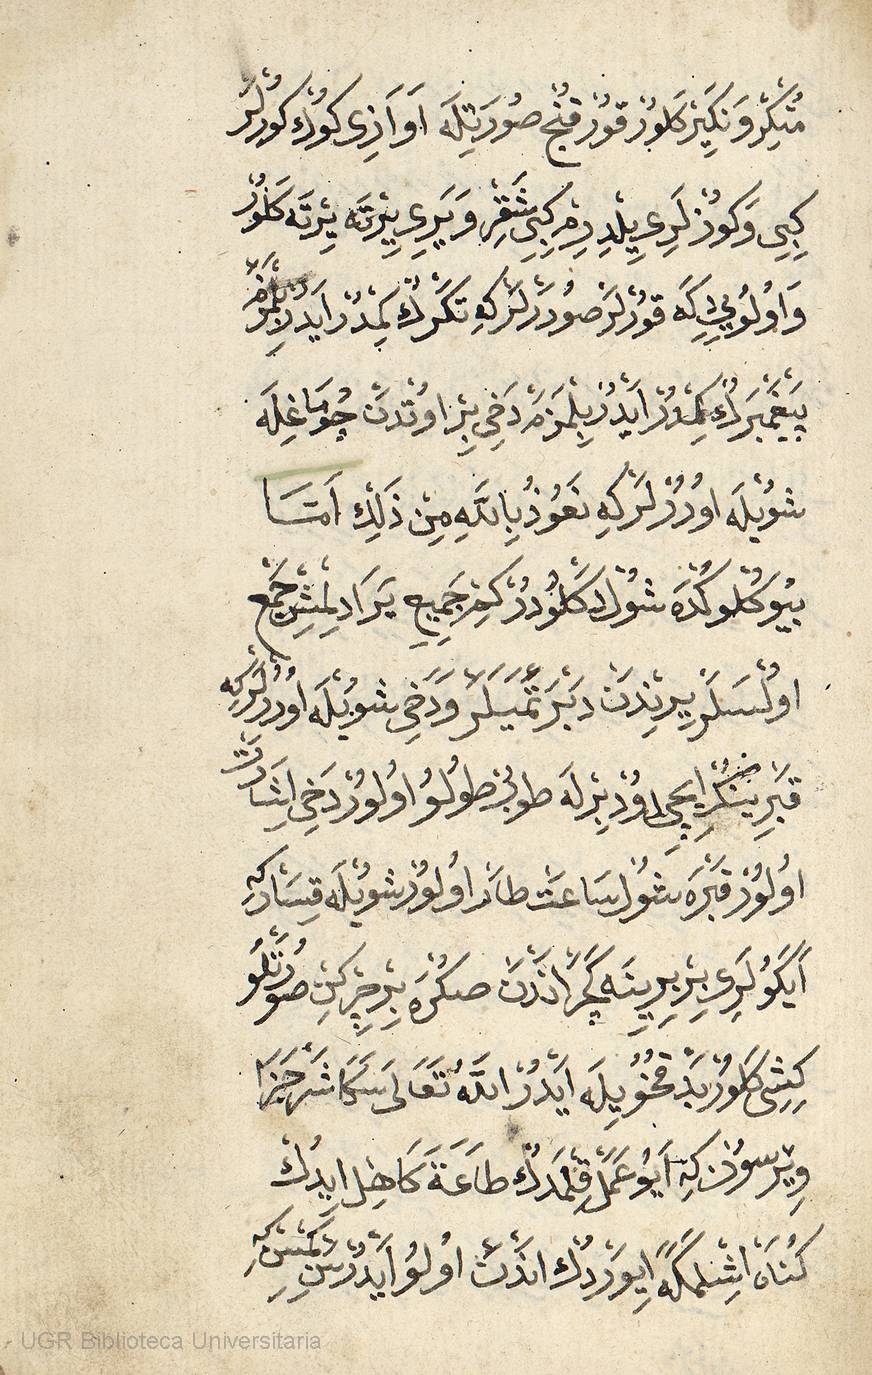 مُنْكَرْ وَ نَكِيرْ كَلُورْ قُورْقُنْجْ صُورَتِلَه اَوَازِی كُوكْ كُورْلَرْ
كِبِی وَ كُوزْلَرِی يِلْدِرِمْ كِبِی شَقِرْ وَ يَرِی يِرْتَه يِرْتَه كَلُورْ
وَ اُولُويَه قُورْلَرْ صُورَرْلَرْ كِه تَكْرُكْ كِمْدُرْ اَيْدُرْ بِلْمَزَمْ
پَيْغَمْبَرُكْ كِمْدُرْ اَيْدُرْ بِلْمَزَمْ دَخِی بِرْ اوُتْدَنْ چُومَاغِلَه
شُويْلَه اوُرُرْلَرْ كِه نَعُوذُ بِاللّٰهِ مِنْ ذَلِكَ اَمَّا
بُيُوكْلُوكْدَه شُولْ دَكْلُودُرْ كِمْ جَمِيعِ يَرَادِلْمِشْ جَمْعْ
اولْسَلَرْ يِرِنْدَنْ دَبْرَتْمَيَلَرْ وَ دَخِی شُويْلَه اوُرُرْلَرْكِه
قَبْرِينِكْ اِيچِی اوُدِيرْلَه طُوپْ طُولُو اوُلُورْ دَخِی اِشَارَتْ
اوُلُورْ قَبْرَه شُولْ سَاعَتْ طَارْ اوُلُورْ شُويْلَه قِسَارْكِه
اَيَكُولَرِی بِرْ بِرِينَه كَچَرْ اَنْدَنْ صكُرَه بِرْ چِرْكِنْ صُورَتْلُو
كِشِی كَلُورْ بَدْ قُخُويِلَه اَيْدُرْ اللّٰهُ تَعَالَى سَكَا شَرْ جَزَا
وِيرْسُونْ كِه اَيُو عَمَلْ قِلْمَدُكْ طَاعَةَ كَاهِلْ اِيدُكْ
كُنَاهْ اِشْلَمَكَه اِيوَرْدُكْ اَنْدَنْ اوُلُو اَيْدُرْ سَنْ كِمْسِنْ كِه
UGR Biblioteca Universitaria